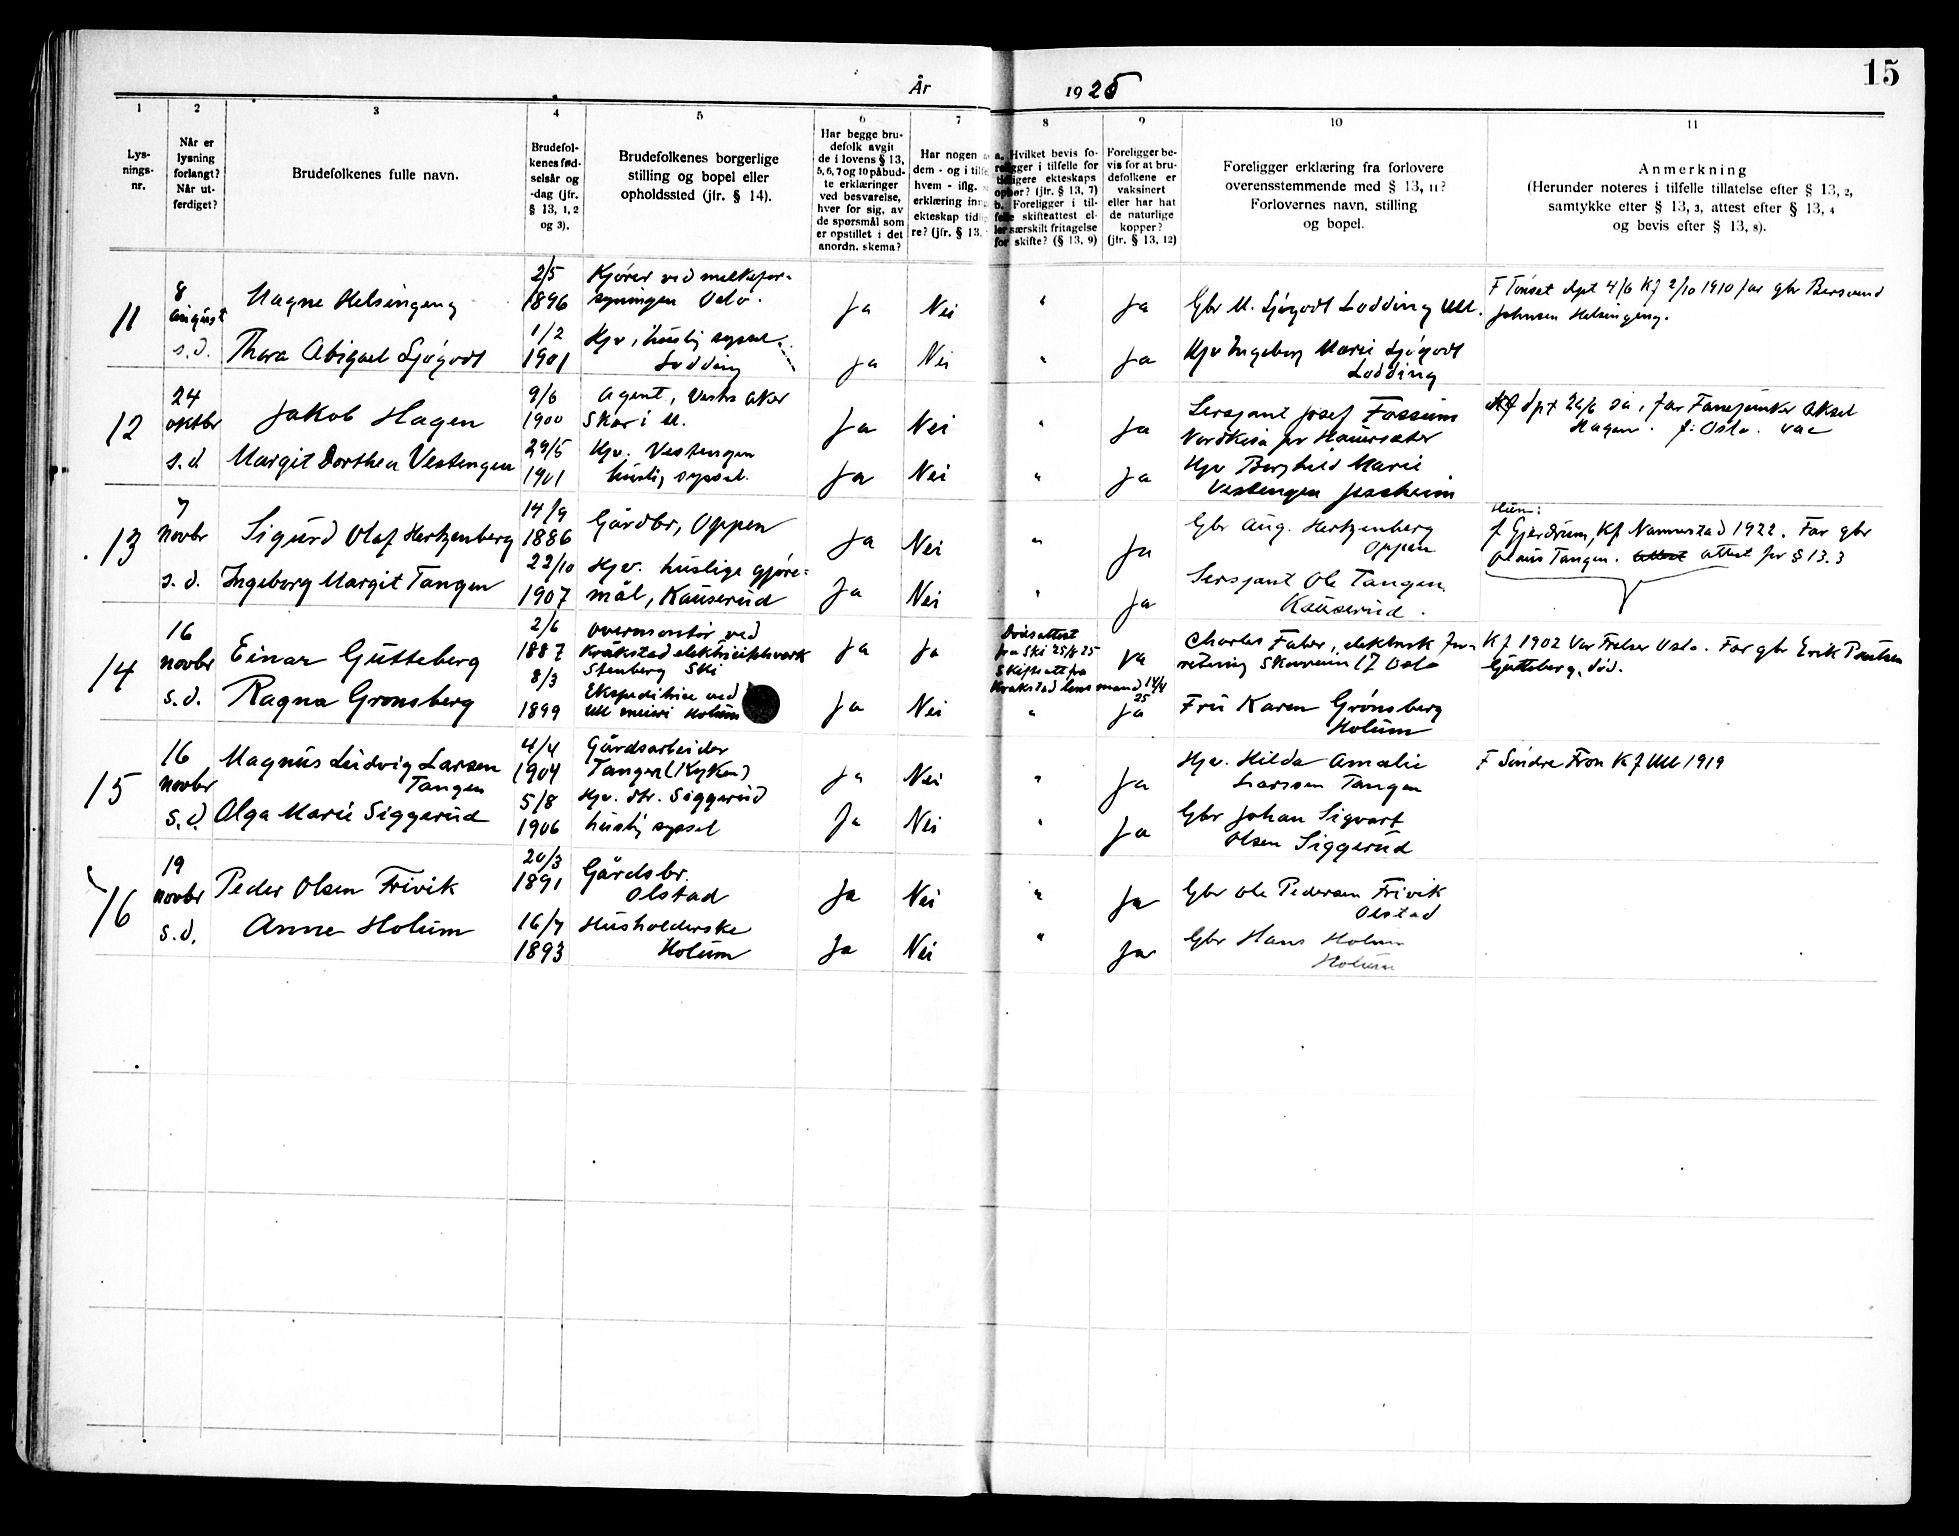 15
År 1925
1 2 3 4 5 6 7 8 9 10 11
Lys-
nings-
nr.
Når er
lysning
forlangt?
Når ut-
ferdiget?
Brudefolkenes fulle navn.
Brudefol-
kenes fød-
selsår og
-dag (jfr.
§ 13, 1, 2
og 3).
Brudefolkenes borgerlige
stilling og bopel eller
opholdssted (jfr. § 14).
Har begge bru-
defolk avgit
de i lovens § 13,
5, 6, 7 og 10 påbud-
te erklæringer
ved besvarelse,
hver for sig, av
de spørsmål som
er opstillet i det
anordn. skema?
Har nogen
dem - og i tilfe
hvem - iflg.
erklæring inn
ekteskap tidl
re? (jfr. § 13,
a. Hvilket bevis fo-
religger i tilfelle for
tidligere ekteskaps
ophør? (jfr. § 13, 7)
b. Foreligger i til-
felle skifteattest el-
ler særskilt fritagelse
for skifte? (§ 13, 9)
Foreligger be-
vis for at bru-
defolkene er
vaksinert
eller har hat
de naturlige
kopper?
(jfr. § 13, 12)
Foreligger erklæring fra forlovere
overensstemmende med § 13, 11?
Forlovernes navn, stilling
og bopel.
Anmerkning
(Herunder noteres i tilfelle tillatelse efter § 13, 2,
samtykke efter § 13, 3, attest efter § 13, 4
og bevis efter § 13, 8).
11
8
august
Magne Helsingeng
2/5
1896
Kjører ved melkefor-
syningen Oslo.
Ja Nei " Ja
Gbr M. Sjøgodt Lodding Ull.
F Tönset dpt 4/6 Kf 2/10 1910 far gbr Bersvend
Johnsen Helsingeng.
s.d.
Thora Abigael Sjøgodt
1/2
1901
Hjv, huslig syssel
Lodding
Ja Nei " Ja
Hjv Ingeborg Marie Sjøgodt
Lodding
12
24
oktbr
Jakob Hagen
9/6
1900
Agent, Vestre Aker
Skar i M.
Ja Nei " Ja
Sersjant Josef Fossum
Nordkisa pr Hauersæter
dpt 26/6 s.å. far Fanejunker Aksel
Hagen. f: Oslo. vac
s.d.
Margit Dorthea Vestengen
29/5
1901
Hjv. Vestengen
huslig syssel.
Ja Nei " Ja
Hjv Borghild Marie
Vestengen Jessheim
13
7
novbr
Sigurd Olaf Hertzenberg
14/9
1886
Gårdbr, Oppen
Ja Nei " Ja
Gbr Aug. Hertzenberg
Oppen
Hun:
f Gjerdrum, Kf Nannestad 1922. Far gbr
Olaus Tangen. attest attest for § 13.3
s.d.
Ingeborg Margit Tangen
22/10
1907
Hjv. huslige gjøre-
mål, Kauserud
Ja Nei " Ja
Sersjant Ole Tangen
Kauserud.
14
16
novbr
Einar Gutteberg
2/6
1887
Overmontør ved
Kråkstad elektricitetsverk
Stenberg Ski
Ja Ja
Dødsattest
fra Ski 25/8 25
Skifteatt fra
Kråkstad lensmand 14/4
25
Ja
Charles Faber, elektrisk for-
retning Skovveien 17 Oslo
Kf 1902 Vor Frelser Oslo. Far gbr Erik Paulsen
Gutteberg, död.
s.d.
Ragna Grønsberg
8/3
1899
Ekspeditrise ved
Ull meieri Holum
Ja Nei " Ja
Fru Karen Grønsberg
Holum
15
16
novbr
Magnus Ludvig Larsen
Tangen
4/4
1904
Gårdsarbeider
Tangen (Kyken)
Ja Nei " Ja
Hjv. Hilda Amalie
Larssen Tangen
F Söndre Fron Kf Ull 1919
s.d.
Olga Marie Siggerud
5/8
1906
Hjv. dtr. Siggerud
huslig syssel
Ja Nei " Ja
Gbr Johan Sigvart
Olsen Siggerud
16
19
novbr
Peder Olsen Frivik
20/3
1891
Gårdsbr.
Olstad
Ja Nei " Ja
Gbr Ole Pedersen Frivik
Olstad
s.d.
Anne Holum
16/7
1893
Husholderske
Holum
Ja Nei " Ja
Gbr Hans Holum
Holum